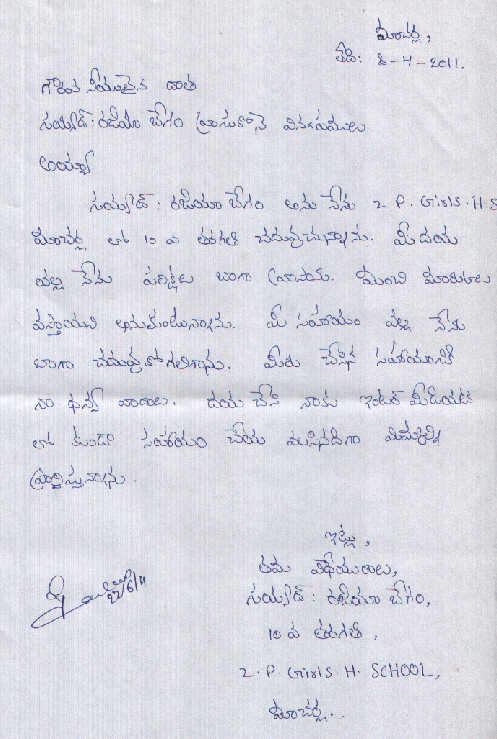 మాచర్ల,
తేది: 8-4-2011.
గౌరవ నీయులైన దాత
సయ్యద్: రజియా బేగం వ్రాసుకొనె విన్నపములు
అయ్యా
సయ్యద్: రజియా బేగం అను నేను 2 P. Girls. H S
మాచర్ల లో 10 వ తరగతి చదువుచున్నాను. మీ దయ
వల్ల నేను పరీక్షలు బాగా వ్రాసాను. మంచి మార్కులు
వస్తాయని అనుకుంటున్నాను. మీ సహాయం వల్ల నేను
బాగా చదువుకోగలిగాను. మీరు చేసిన సహాయానికి
నా ధన్య వాదాలు. దయ చేసి నాకు ఇంటర్ మీడియట్
లో కూడా సహాయం చేయ వలసినదిగా మిమ్మల్ని
ప్రార్ధిస్తున్నాను.
ఇట్లు,
తమ విధేయురాలు,
సయ్యద్: రజియా బేగం,
10 వ తరగతి,
2. P Girls. H. SCHOOL,
మాచర్ల..
22/6/11